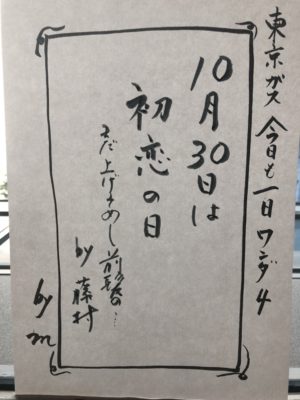 東京ガス 今日も一日ワンダ4
10月30日は
初恋の日
まだ上げそめし前髪の…
by 藤村
by m